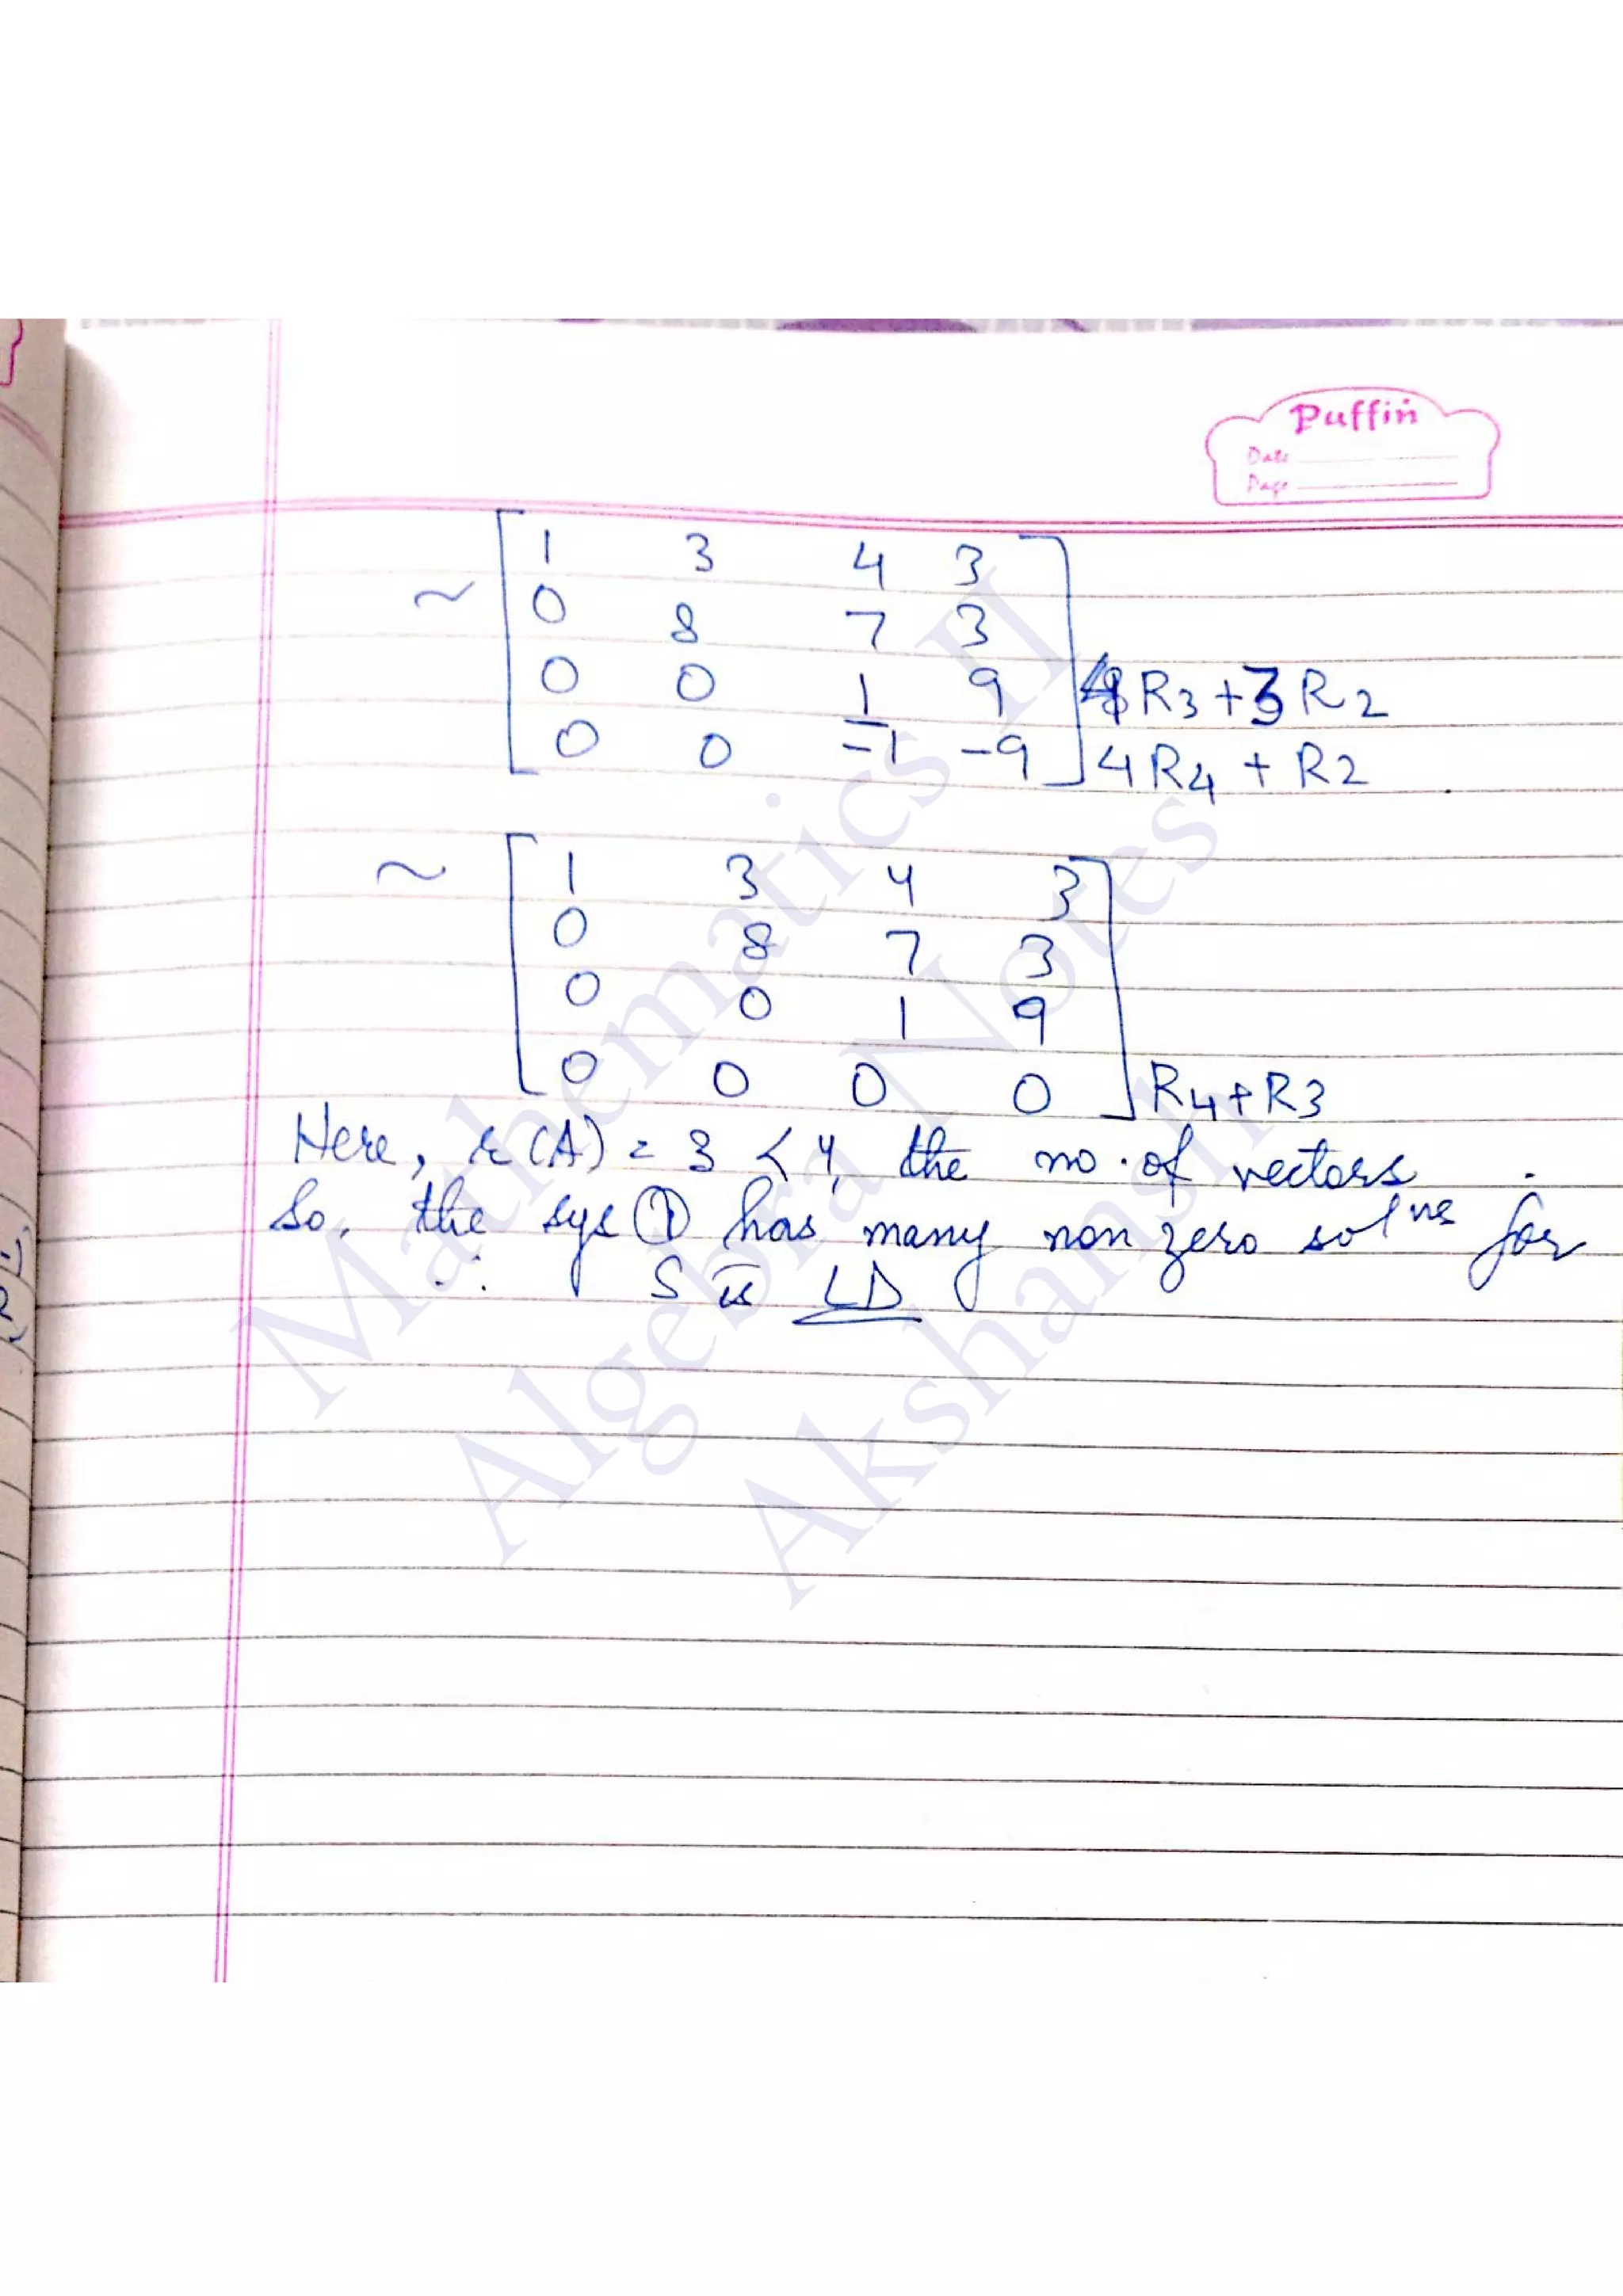 Puffin
Date
Page
~ [ 1 3 4 3
0 8 7 3
0 0 1 9 R3+3R2
0 0 -1 -9 ] 4R4 + R2
~ [ 1 3 4 3
0 8 7 3
0 0 1 9
0 0 0 0 ] R4+R3
Here, r(A) = 3 < 4, the no. of vectors
So, the sys ① has many non zero solns for
∴ S is LD
Mathematics II
Algebra Notes
Akshansh